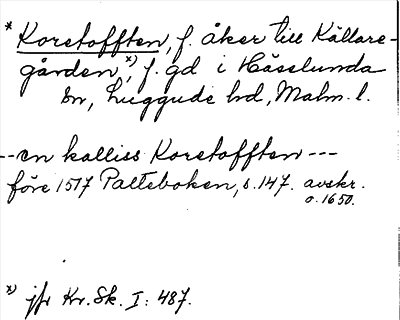 * Korstofften, f. åker till Källare-
gården,*) f. gd i Hässlunda
sn, Luggude hd, Malm. l.
--en kalliss Korstofften---
före 1517 Palteboken, s. 147. avskr.
o. 1650.
*) jfr Kr. Sk. I: 487.